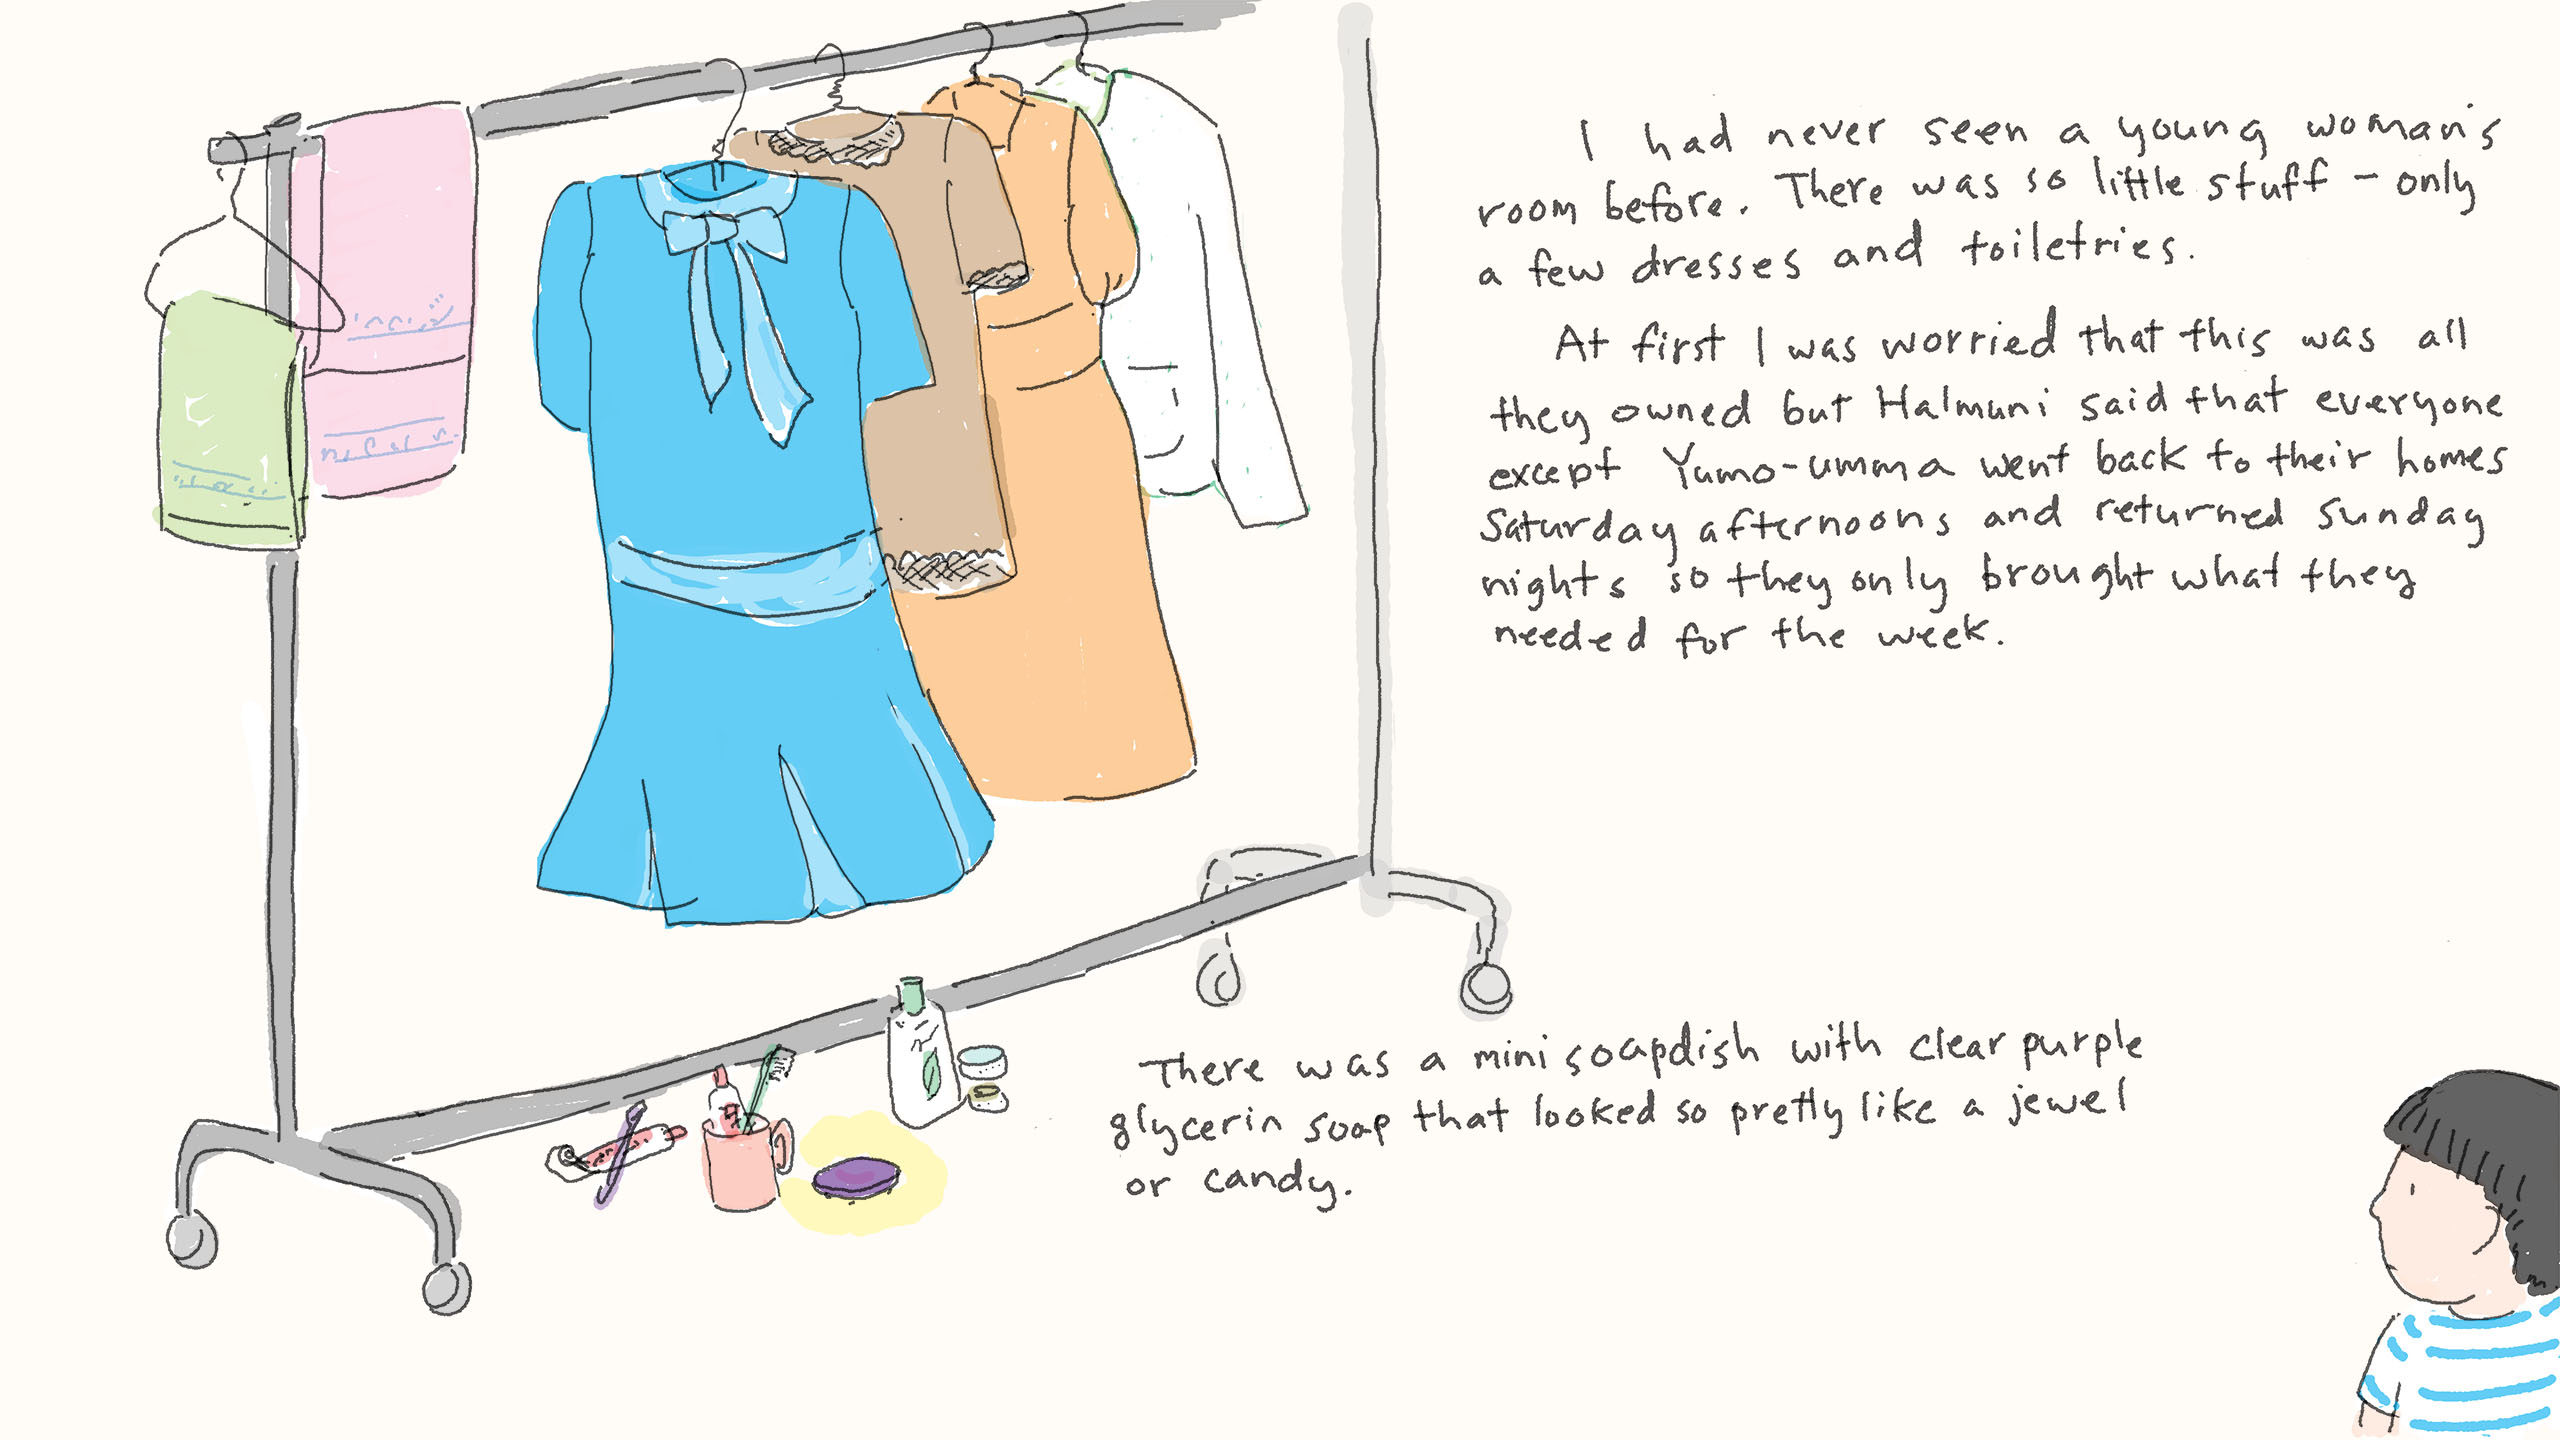 I had never seen a young woman's
room before. There was so little stuff - only
a few dresses and toiletries.
At first I was worried that this was all
they owned but Halmuni said that everyone
except Yumo-umma went back to their homes
Saturday afternoons and returned Sunday
nights so they only brought what they
needed for the week.
There was a mini soapdish with clear purple
glycerin soap that looked so pretty like a jewel
or candy.